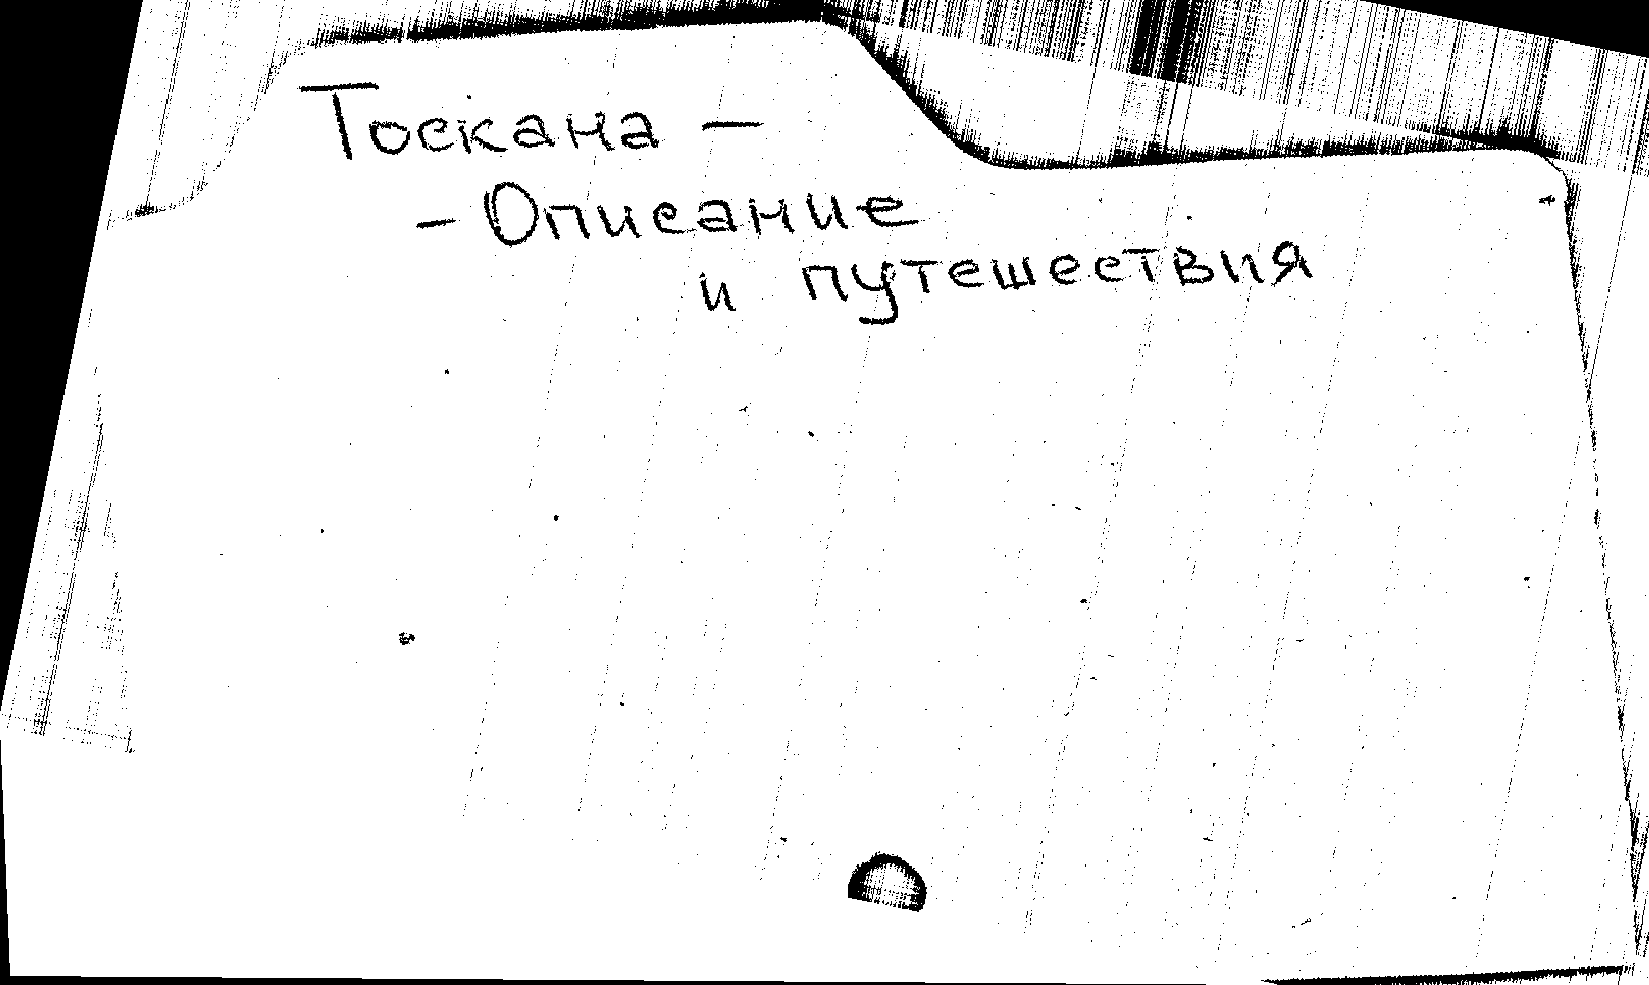 Тоскана —
- Описание
и путешествия